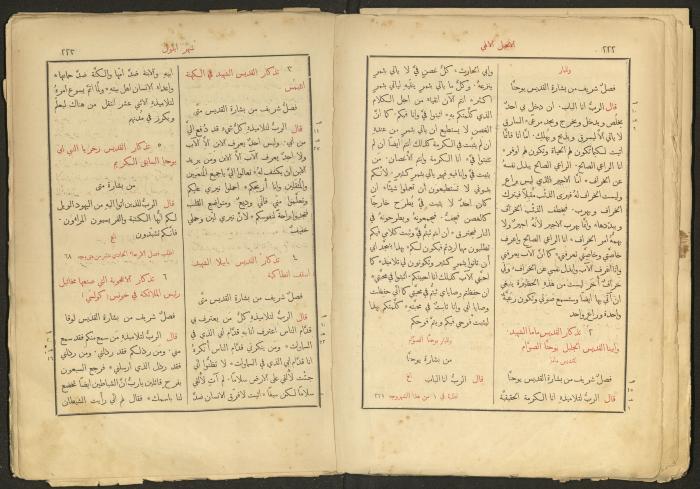 ٢٢٢
الانجيل الالهي
ولمار
فصلٌ شريف من بشارة القديس يوحنا
قال الربُّ انا الباب. ان دخل بي احدٌ
يخلص ويدخل ويخرج ويجد مرعى* السارق
لا ياتي الَّا ليسرق ويذبح ويهلك. امَّا انا فانَّما
اتيت لتكون لهم الحياة وتكون لهم اوفر*
انا الراعي الصالح. الراعي الصالح يبذل نفسهُ
عن الخراف* امَّا الاجير الذي ليس براعٍ
وليست الخراف لهُ فيرى الذئب مقبلًا فيترك
الخراف ويهرب. فيخطف الذئب الخراف
ويبددها* وانما يهرب الاجير لانهُ اجيرٌ ولا
يهمهُ امر الخراف* انا الراعي الصالح واعرف
خاصتي وخاصتي تعرفني* كما انَّ الآب يعرفني
وانا اعرف الآب وابذل نفسي عن الخراف* ولي
خرافٌ اُخر ليست من هذه الحظيرة ينبغي
ان آتي بها ايضًا وستسمع صوتي وتكون رعيةٌ
واحدة وراعٍ واحد
٢ تذكار القديس ماما الشهيد.
وابينا القديس الجليل يوحنا الصوَّام
للقديس ماما
فصلٌ شريف من بشارة القديس يوحنا
قال الربُّ لتلاميذهِ انا الكرمة الحقيقية
وابي الحارث* كلُّ غصنٍ فيَّ لا ياتي بثمرٍ
ينزعهُ. وكلُّ ما ياتي بثمرٍ ينقيهِ لياتي بثمرٍ
اكثر* انتم الآن انقياء من اجل الكلام
الذي كلَّمتكم بهِ* اثبتوا فيَّ وانا فيكم* كما انَّ
الغصن لا يستطيع ان ياتي بثمرٍ من عندهِ
ان لم يثبت في الكرمة كذلك انتم ايضًا ان لم
تثبتوا فيَّ* انا الكرمة وانتم الاغصان. من
يثبت فيَّ وانا فيهِ فهو ياتي بثمرٍ كثير. لانكم
بدوني لا تستطيعون ان تعملوا شيئًا* ان
كان احدٌ لا يثبت فيَّ يُطرح خارجًا
كالغصن فيجفُّ. فيجمعونهُ ويطرحونهُ في
النار فيحترق* ان انتم ثبتُّم فيَّ وثبت كلامي فيكم
تطلبون مهما اردتم فيكون لكم* بهذا يتمجد ابي
ان تاتوا بثمرٍ كثير وتكونوا لي تلاميذ* كما
احبني الآب كذلك انا احببتكم. اثبتوا في محبتي*
ان حفظتم وصاياي ثبتُّم في محبتي كما اني حفظت
وصايا ابي وانا ثابتٌ في محبتهِ* كلَّمتكم بهذا
ليثبت فرحي فيكم ويتمَّ فرحكم
ولمار يوحنا الصوَّام
من بشارة يوحنا
قال الربُّ انا الباب الخ
٢٢٣
شهر ايلول
٣ تذكار القديس الشهيد في الكهنة
انثيمس
فصلٌ شريف من بشارة القديس متى
قال الربُّ لتلاميذهِ كلُّ شيء قد دُفع اليَّ
من ابي. وليس احدٌ يعرف الابن الَّا الآب
ولا احدٌ يعرف الآب الَّا الابن ومن يريد
الابن ان يكشف لهُ* تعالوا اليَّ يا جميع المتعبين
والمثقلين وانا اريحكم* احملوا نيري عليكم
وتعلَّموا مني فاني وديعٌ ومتواضع القلب
فتجدوا راحةً لنفوسكم* لانَّ نيري ليِّن وحملي
خفيف
٤ تذكار القديس بابيلا الشهيد
اسقف انطاكية
فصلٌ شريف من بشارة القديس متى
قال الربُّ لتلاميذهِ كلُّ مَن يعترف بي
قدَّام الناس اعترف انا بهِ قدَّام ابي الذي في
السماوات* ومن ينكرني قدَّام الناس أُنكرهُ
انا قدَّام ابي الذي في السماوات* لا تظنُّوا اني
جئت لألقي على الارض سلامًا. لم آتِ لألقي
سلامًا لكن سيفًا* اتيت لافرّق الانسان ضدَّ
ابيهِ والابنة ضدَّ امّها والكنَّة ضدَّ حماتها*
واعداءُ الانسان اهل بيتهِ* ولمَّا اتمَّ يسوع امرهُ
لتلاميذهِ الاثني عشر انتقل من هناك ليعلّم
ويكرز في مدنهم
٥ تذكار القديس زخريا النبي ابي
يوحنا السابق الكريم
من بشارة متى
قال الربُّ للذين اتوا اليهِ من اليهود الويل
لكم ايُّها الكتبة والفريسيون المراؤون.
فانكم تشيّدون الخ
٦ تذكار الاعجوبة التي صنعها مخائيل
رئيس الملائكة في خونس (كولسي)
فصلٌ شريف من بشارة القديس لوقا
قال الربُّ لتلاميذهِ مَن سمع منكم فقد سمع
مني. ومن رذلكم فقد رذلني. ومن رذلني
فقد رذل الذي ارسلني* فرجع السبعون
بفرحٍ قائلين يا ربُّ انَّ الشياطين ايضًا تخضع
لنا باسمك* فقال لهم اني رأيت الشيطان